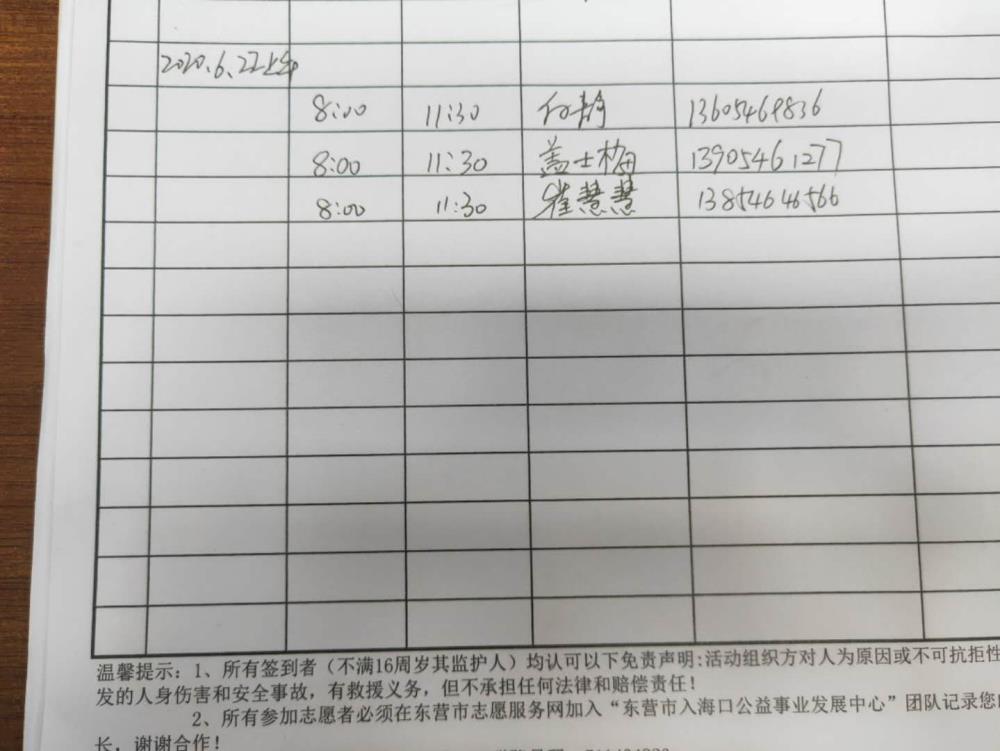 2020.6.22上午
8:00 11:30 付静 13605469836
8:00 11:30 盖士梅 13905461277
8:00 11:30 崔慧慧 13854646566
温馨提示：1、所有签到者（不满16周岁其监护人）均认可以下免责声明:活动组织方对人为原因或不可抗拒性
发的人身伤害和安全事故，有救援义务，但不承担任何法律和赔偿责任！
2、所有参加志愿者必须在东营市志愿服务网加入“东营市入海口公益事业发展中心”团队记录您
长，谢谢合作！